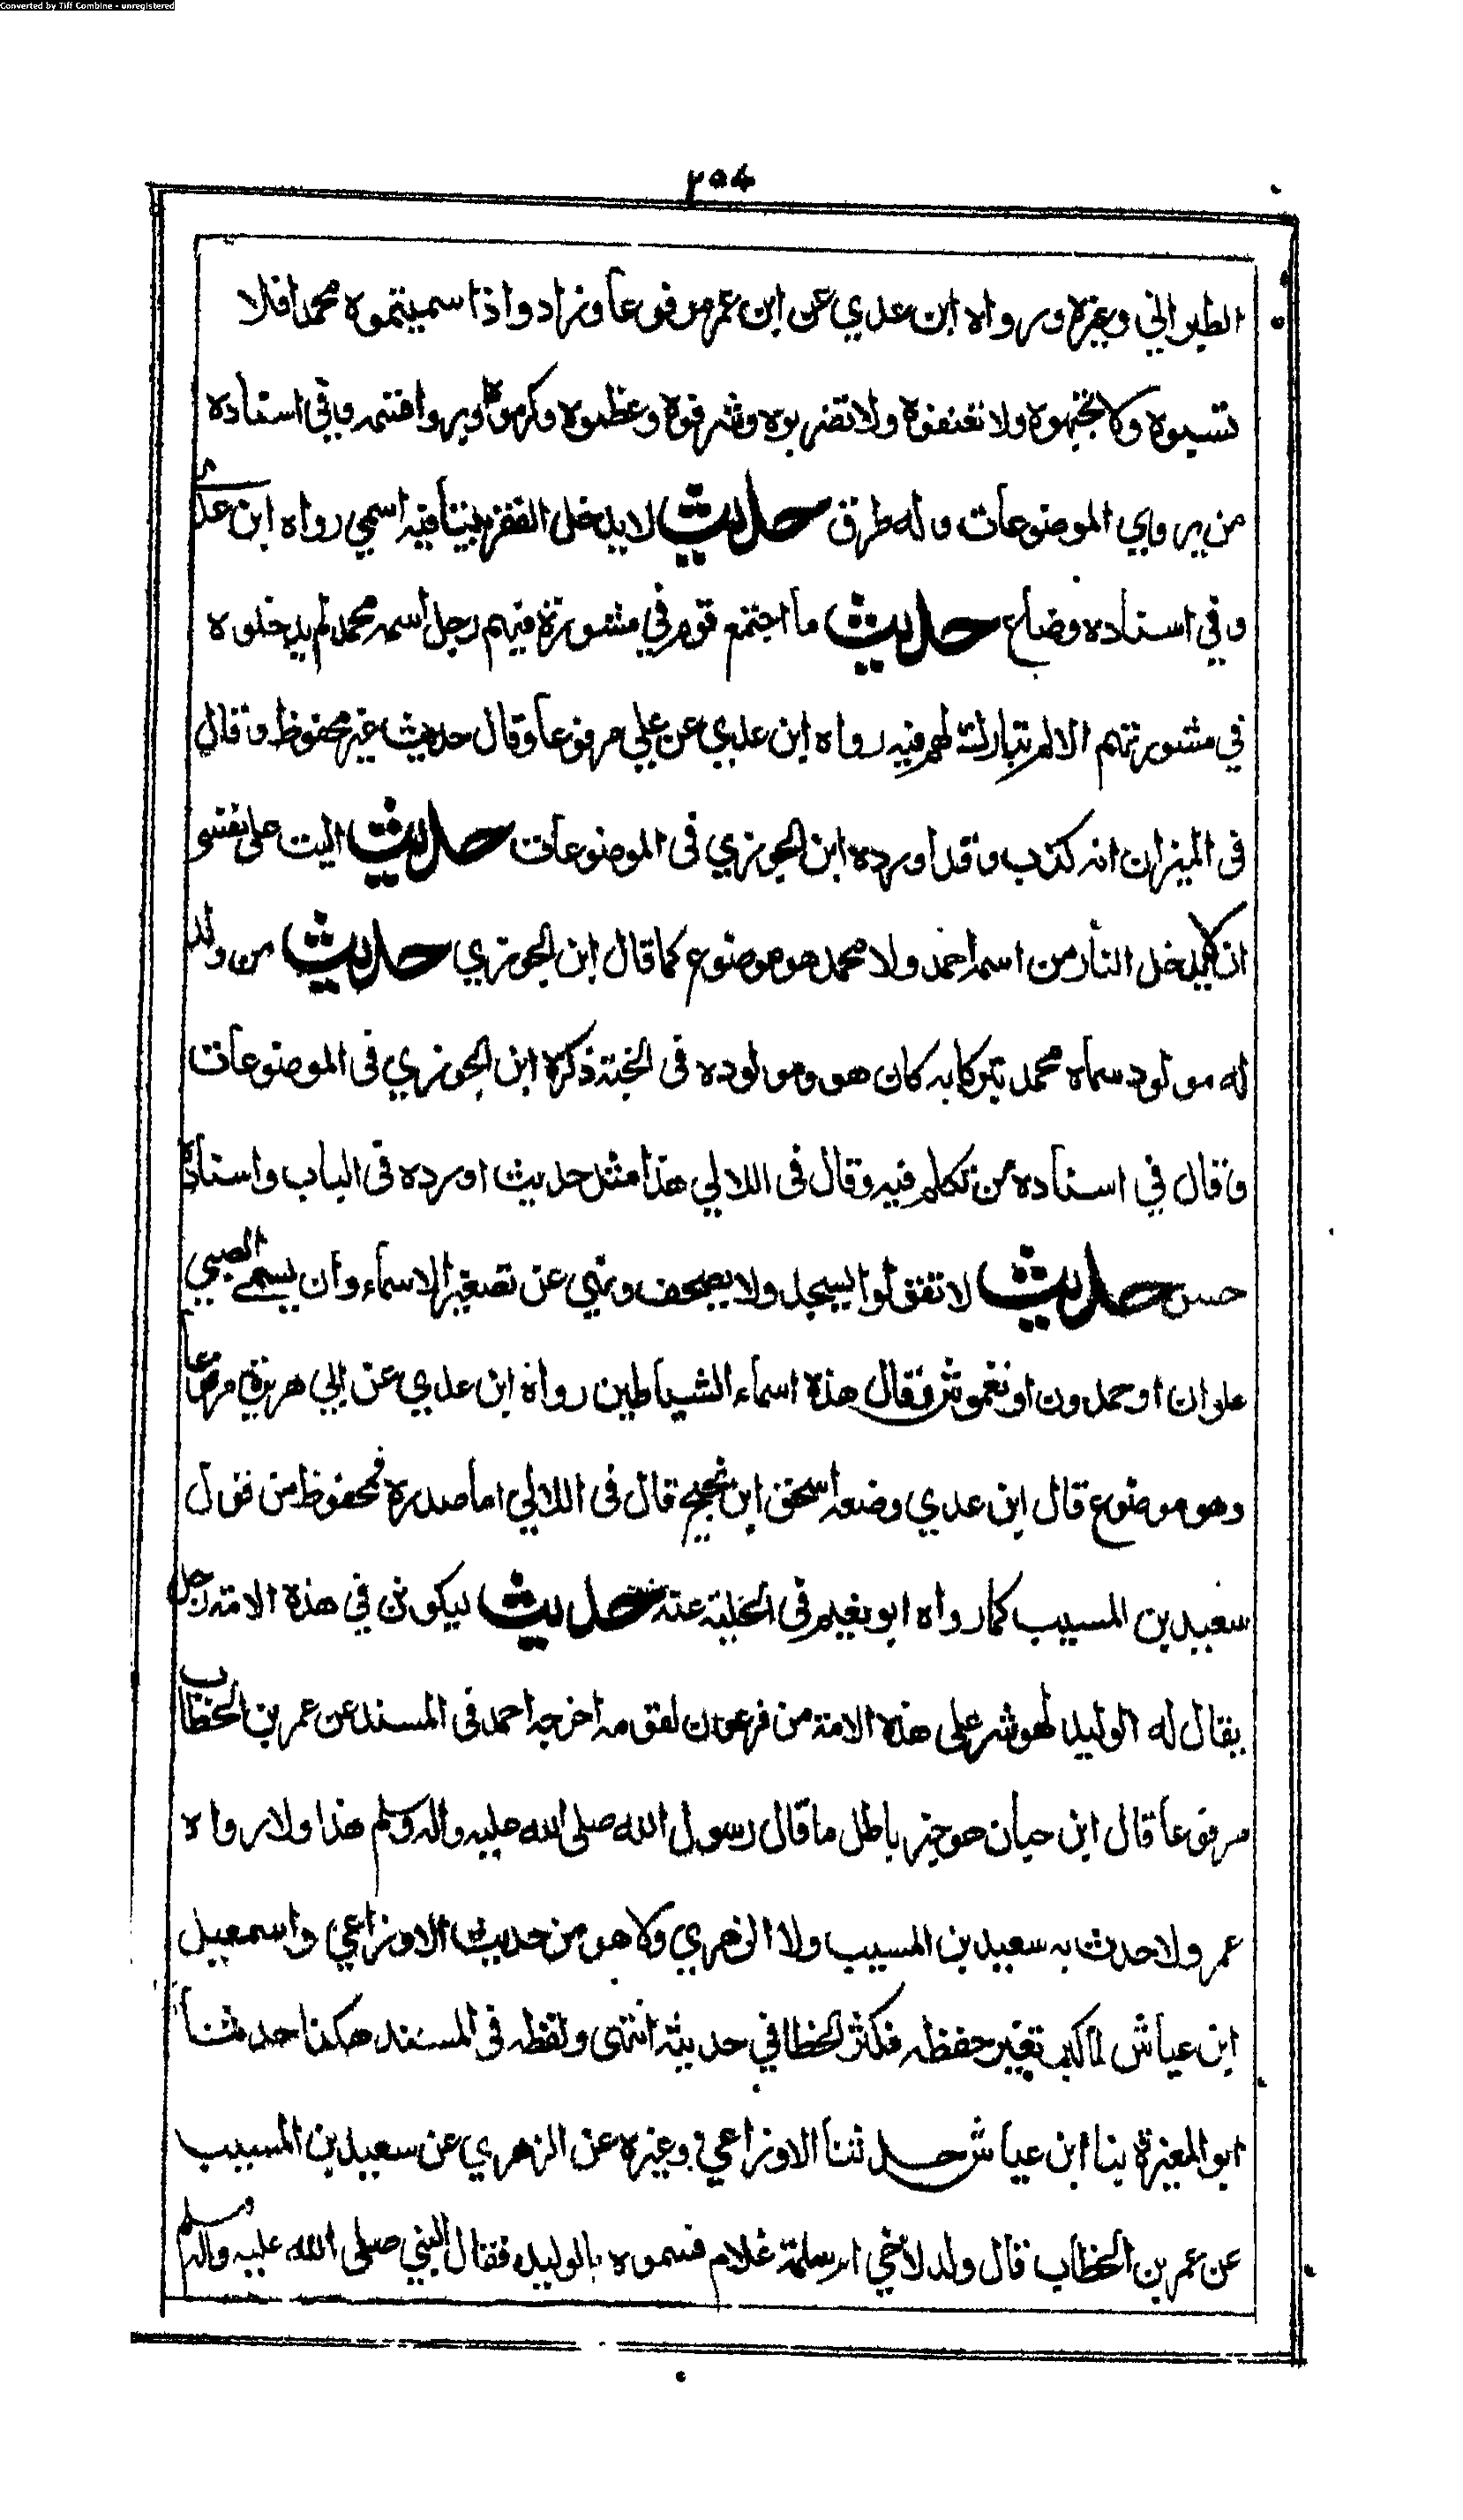 Converted by Tiff Combine - unregistered
٢٥٤
الطبراني وغيره ورواه ابن عدي عن ابن عمر مرفوعا وزاد واذا سميتموه محمدا فلا
تسبوه ولا تجبهوه ولا تعنفوه ولا تضربوه وشرفوه وعظموه وكرموه وبروا قسمه وفي اسناده
من يروي الموضوعات وله طرق حديث لا يدخل الفقر بيتا فيه اسمي رواه ابن عدي
وفي اسناده وضاع حديث ما اجتمع قوم في مشورة فيهم رجل اسمه محمد لم يدخلوه
في مشورتهم الا لم يتبارك لهم فيه رواه ابن عدي عن علي مرفوعا وقال حديث غير محفوظ وقال
في الميزان انه كذب وقد اورده ابن الجوزي في الموضوعات حديث اليت على نفسي
ان لا يدخل النار من اسمه احمد ولا محمد هو موضوع كما قال ابن الجوزي حديث من ولد
له مولود سماه محمد تبركا به كان هو ومولوده في الجنة ذكره ابن الجوزي في الموضوعات
وقال في اسناده من تكلم فيه وقال في اللالي هذا مثل حديث اورده في الباب واسناده
حسن حديث لا تقولوا مسيجد ولا مصحف ونهي عن تصغير الاسماء وان يسمى الصبي
علوان او حمدون او نغموش وقال هذه اسماء الشياطين رواه ابن عدي عن ابي هريرة مرفوعا
وهو موضوع قال ابن عدي وضعه اسحق ابن نجيح قال في اللالي اما صدره فمحفوظ من قول
سعيد بن المسيب كما رواه ابو نعيم في الحلية عنه حديث ليكونن في هذه الامة رجل
يقال له الوليد لهو شر على هذه الامة من فرعون لقومه اخرجه احمد في المسند عن عمر بن الخطاب
مرفوعا قال ابن حبان هو خبر باطل ما قال رسول الله صلى الله عليه واله وسلم هذا ولا رواه
عمر ولا حدث به سعيد بن المسيب ولا الزهري ولا هو من حديث الاوزاعي واسمعيل
ابن عياش لما كبر تغير حفظه فكثر الخطا في حديثه انتهى ولفظه في المسند هكذا حدثنا
ابو المغيرة ثنا ابن عياش حدثنا الاوزاعي وغيره عن الزهري عن سعيد بن المسيب
عن عمر بن الخطاب قال ولد لاخي ام سلمة غلام فسموه بالوليد فقال النبي صلى الله عليه واله وسلم